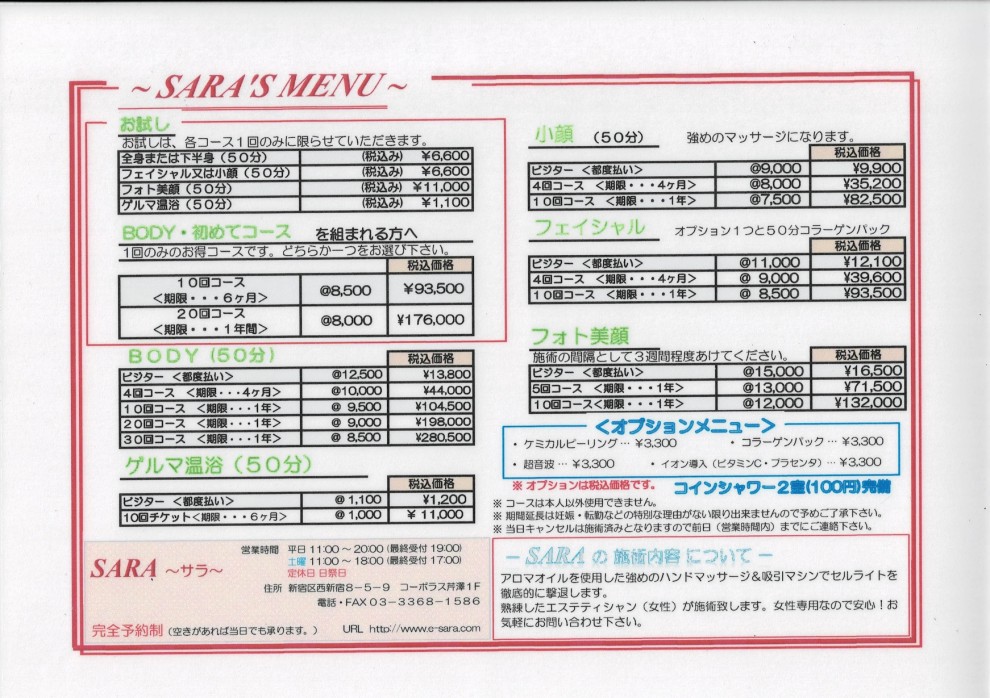 ~ SARA'S MENU ~
お試し
お試しは、各コース1回のみに限らせていただきます。
全身または下半身（50分） (税込み) ¥6,600
フェイシャル又は小顔（50分） (税込み) ¥6,600
フォト美顔（50分） (税込み) ¥11,000
ゲルマ温浴（50分） (税込み) ¥1,100
BODY・初めてコース を組まれる方へ
1回のみのお得コースです。どちらか一つをお選び下さい。
税込価格
10回コース
＜期限・・・6ヶ月＞ @8,500 ¥93,500
20回コース
＜期限・・・1年間＞ @8,000 ¥176,000
BODY（50分） 税込価格
ビジター ＜都度払い＞ @12,500 ¥13,800
4回コース ＜期限・・・4ヶ月＞ @10,000 ¥44,000
10回コース ＜期限・・・1年＞ @ 9,500 ¥104,500
20回コース ＜期限・・・1年＞ @ 9,000 ¥198,000
30回コース ＜期限・・・1年＞ @ 8,500 ¥280,500
ゲルマ温浴（50分）
税込価格
ビジター ＜都度払い＞ @ 1,100 ¥1,200
10回チケット＜期限・・・6ヶ月＞ @ 1,000 ¥ 11,000
小顔 （50分） 強めのマッサージになります。
税込価格
ビジター ＜都度払い＞ @9,000 ¥9,900
4回コース ＜期限・・・4ヶ月＞ @8,000 ¥35,200
10回コース ＜期限・・・1年＞ @7,500 ¥82,500
フェイシャル オプション1つと50分コラーゲンパック
税込価格
ビジター ＜都度払い＞ @11,000 ¥12,100
4回コース ＜期限・・・4ヶ月＞ @ 9,000 ¥39,600
10回コース ＜期限・・・1年＞ @ 8,500 ¥93,500
フォト美顔
施術の間隔として3週間程度あけてください。 税込価格
ビジター ＜都度払い＞ @15,000 ¥16,500
5回コース ＜期限・・・1年＞ @13,000 ¥71,500
10回コース＜期限・・・1年＞ @12,000 ¥132,000
＜オプションメニュー＞
・ ケミカルピーリング… ¥3,300 ・ コラーゲンパック … ¥3,300
・ 超音波 … ¥3,300 ・ イオン導入（ビタミンC・プラセンタ） … ¥3,300
※ オプションは税込価格です。 コインシャワー2室(100円)完備
※ コースは本人以外使用できません。
※ 期間延長は妊娠・転勤などの特別な理由がない限り出来ませんので予めご了承下さい。
※ 当日キャンセルは施術済みとなりますので前日（営業時間内）までにご連絡下さい。
SARA ～サラ～
営業時間 平日 11:00 ～ 20:00 (最終受付 19:00)
土曜 11:00 ～ 18:00 (最終受付 17:00)
定休日 日祭日
住所 新宿区西新宿8－5－9 コーポラス芹澤1F
電話・FAX 03－3368－1586
完全予約制（空きがあれば当日でも承ります。） URL http://www.e-sara.com
－ SARA の 施術内容 について －
アロマオイルを使用した強めのハンドマッサージ＆吸引マシンでセルライトを
徹底的に撃退します。
熟練したエステティシャン（女性）が施術致します。女性専用なので安心！お
気軽にお問い合わせ下さい。